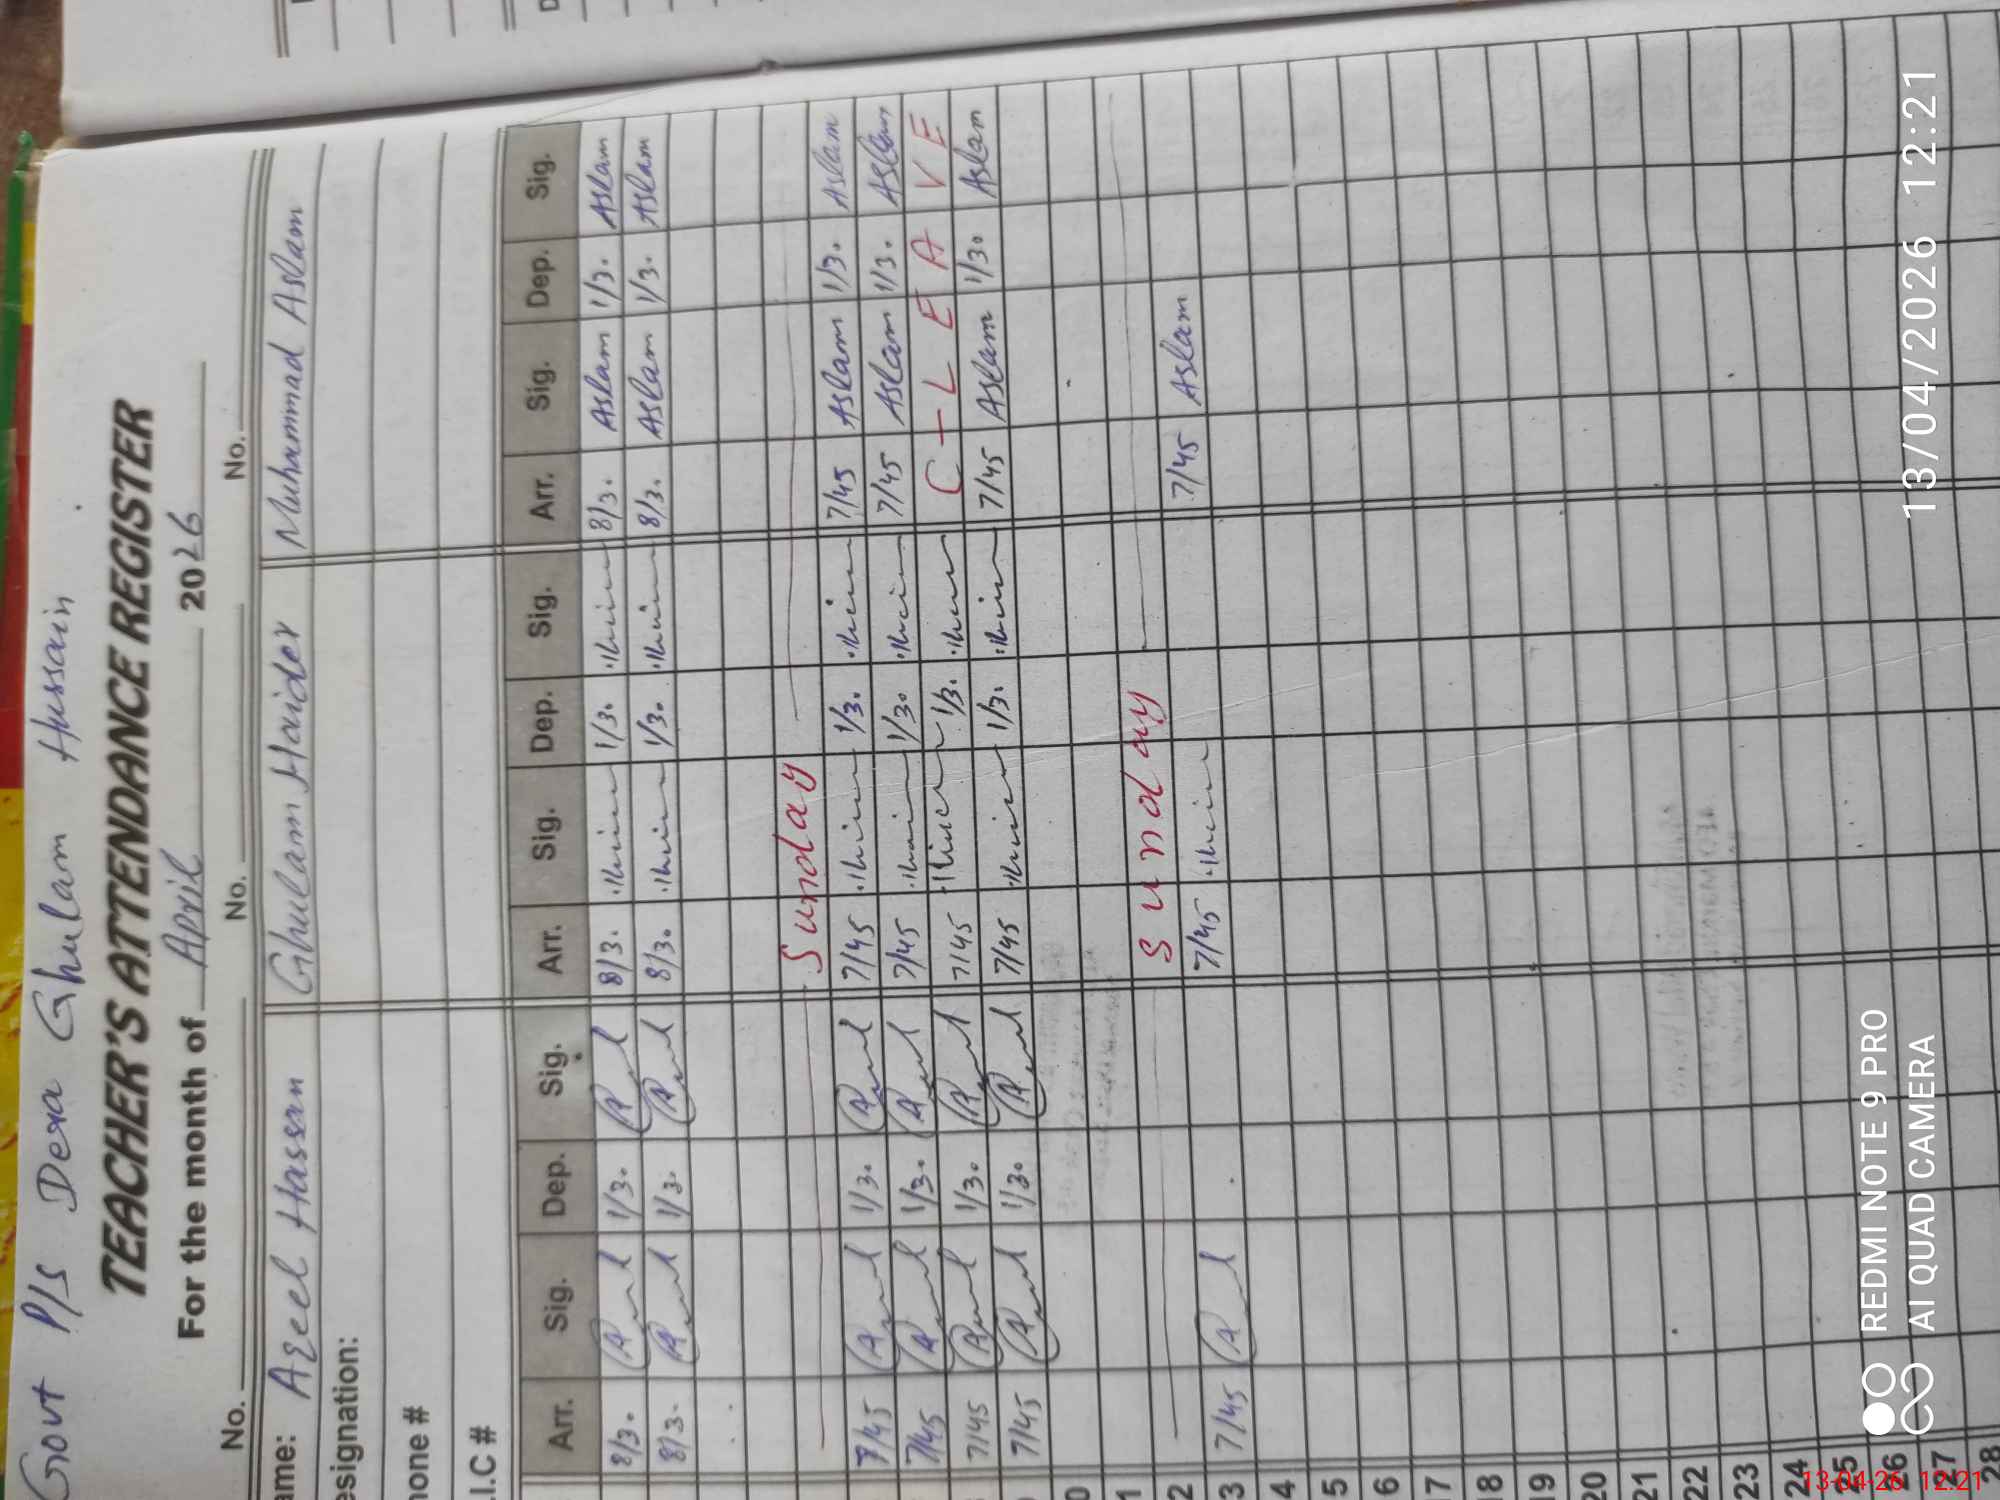 Govt P/S Dera Ghulam Hussain
TEACHER'S ATTENDANCE REGISTER
For the month of April 2026
No. No. No.
ame: Azeel Hassan Ghulam Haider Muhammad Aslam
esignation:
hone #
.I.C #
Arr. Sig. Dep. Sig. Arr. Sig. Dep. Sig. Arr. Sig. Dep. Sig.
8/30 1/30 8/30 1/30 8/30 Aslam 1/30 Aslam
8/30 1/30 8/30 1/30 8/30 Aslam 1/30 Aslam
Sunday
7/45 1/30 7/45 1/30 7/45 Aslam 1/30 Aslam
7/45 1/30 7/45 1/30 7/45 Aslam 1/30 Aslam
7/45 1/30 7/45 1/30 C-LEAVE
7/45 1/30 7/45 1/30 7/45 Aslam 1/30 Aslam
0
1
2 Sunday
3 7/45 7/45 7/45 Aslam
4
5
6
7
18
19
20
21
22
23
24
25
26
27
28
REDMI NOTE 9 PRO
AI QUAD CAMERA
13/04/2026 12:21
13-04-26 12:21